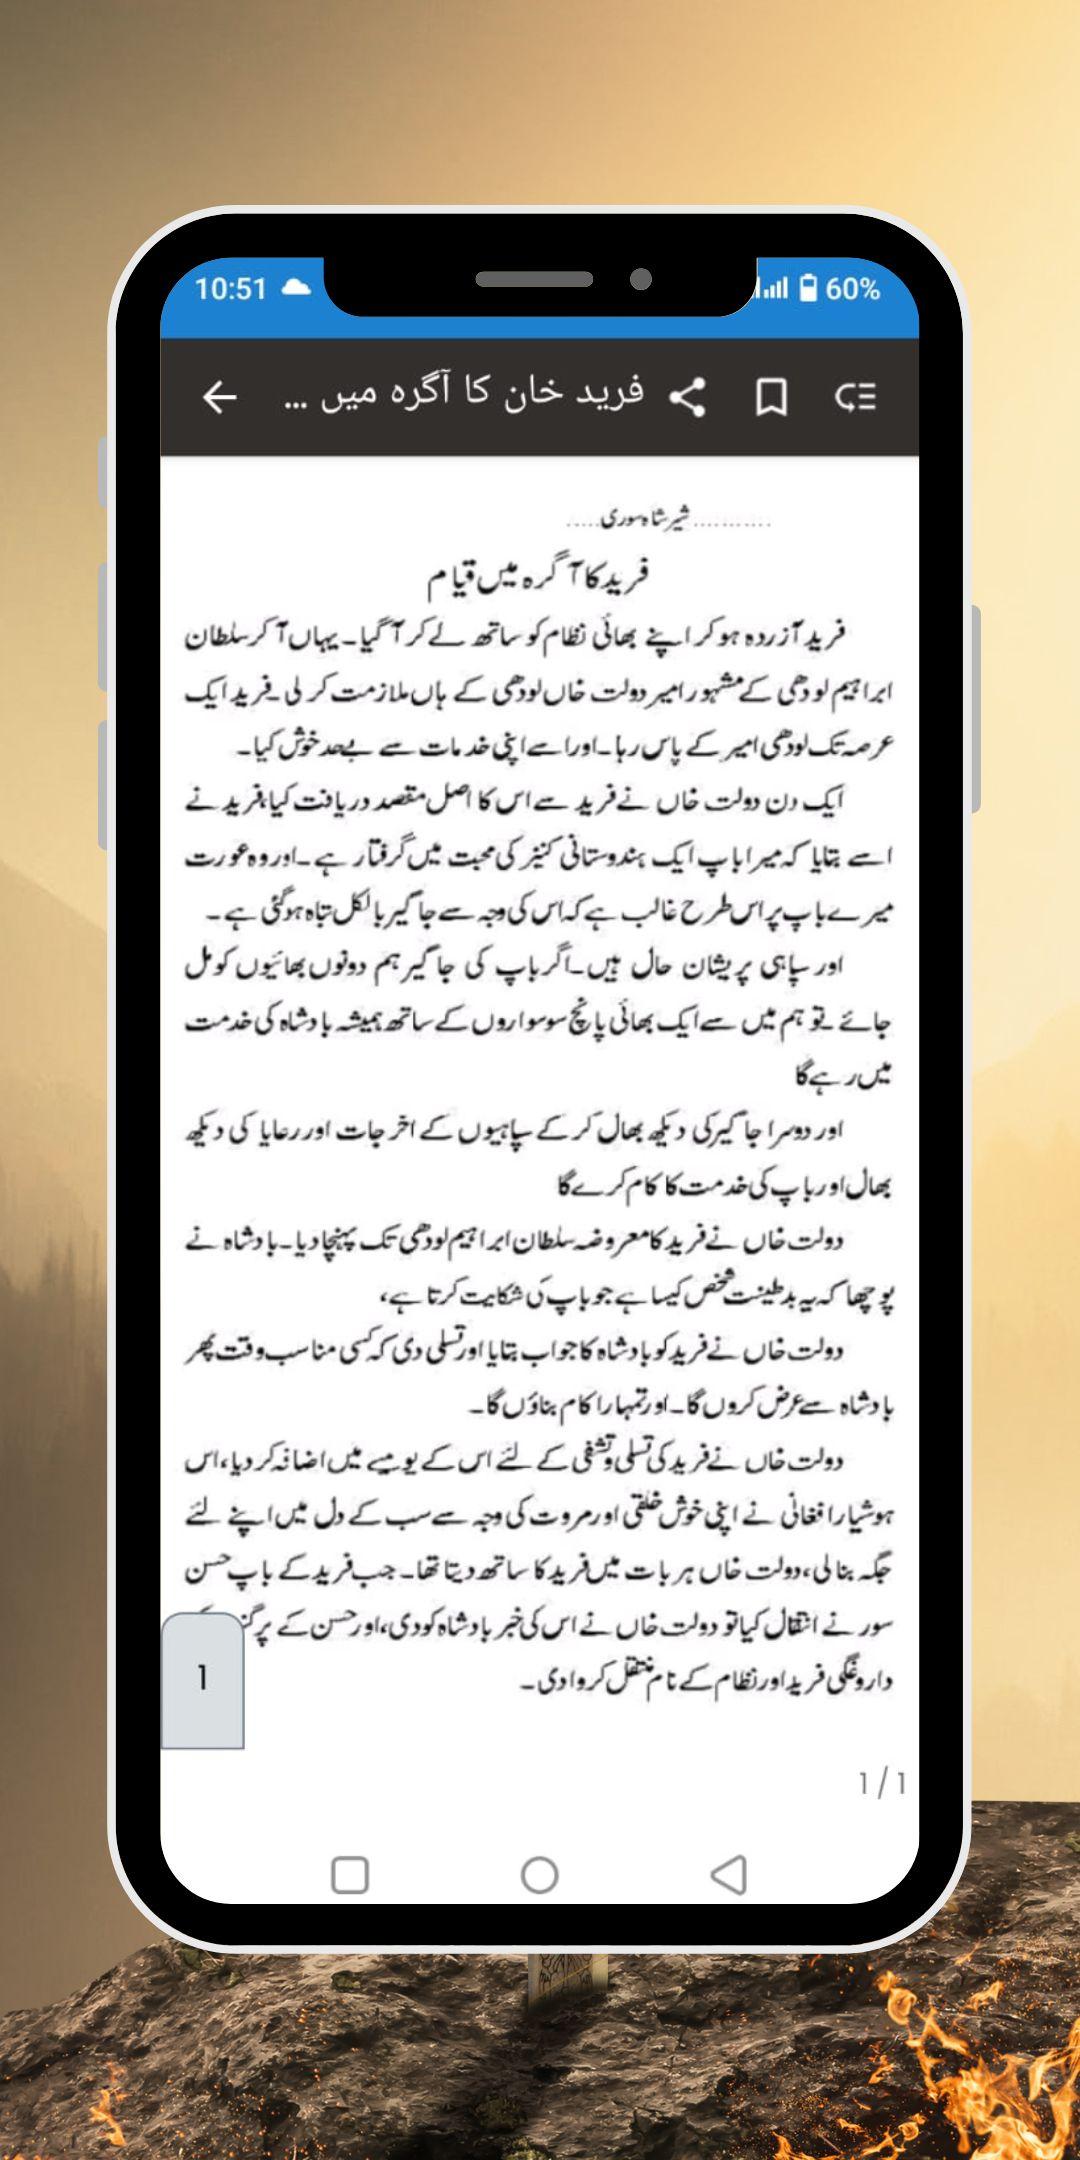 10:51
60%
فرید خان کا آگرہ میں ...
...........شیر شاہ سوری.....
فرید کا آگرہ میں قیام
فرید آزردہ ہو کر اپنے بھائی نظام کو ساتھ لے کر آ گیا۔ یہاں آ کر سلطان
ابراہیم لودھی کے مشہور امیر دولت خاں لودھی کے ہاں ملازمت کر لی۔ فرید ایک
عرصہ تک لودھی امیر کے پاس رہا۔ اور اسے اپنی خدمات سے بے حد خوش کیا۔
ایک دن دولت خاں نے فرید سے اس کا اصل مقصد دریافت کیا، فرید نے
اسے بتایا کہ میرا باپ ایک ہندوستانی کنیز کی محبت میں گرفتار ہے۔ اور وہ عورت
میرے باپ پر اس طرح غالب ہے کہ اس کی وجہ سے جاگیر بالکل تباہ ہو گئی ہے۔
اور سپاہی پریشان حال ہیں۔ اگر باپ کی جاگیر ہم دونوں بھائیوں کو مل
جائے تو ہم میں سے ایک بھائی پانچ سو سواروں کے ساتھ ہمیشہ بادشاہ کی خدمت
میں رہے گا
اور دوسرا جاگیر کی دیکھ بھال کر کے سپاہیوں کے اخرجات اور رعایا کی دیکھ
بھال اور باپ کی خدمت کا کام کرے گا
دولت خاں نے فرید کا معروضہ سلطان ابراہیم لودھی تک پہنچا دیا۔ بادشاہ نے
پوچھا کہ یہ بدطینت شخص کیسا ہے جو باپ کی شکایت کرتا ہے،
دولت خاں نے فرید کو بادشاہ کا جواب بتایا اور تسلی دی کہ کسی مناسب وقت پھر
بادشاہ سے عرض کروں گا۔ اور تمہارا کام بناؤں گا۔
دولت خاں نے فرید کی تسلی و تشفی کے لئے اس کے یومیے میں اضافہ کر دیا، اس
ہوشیار افغانی نے اپنی خوش خلقی اور مروت کی وجہ سے سب کے دل میں اپنے لئے
جگہ بنا لی، دولت خاں ہر بات میں فرید کا ساتھ دیتا تھا۔ جب فرید کے باپ حسن
سور نے انتقال کیا تو دولت خاں نے اس کی خبر بادشاہ کو دی، اور حسن کے
داروغگی فرید اور نظام کے نام منتقل کروا دی۔
1
1 / 1